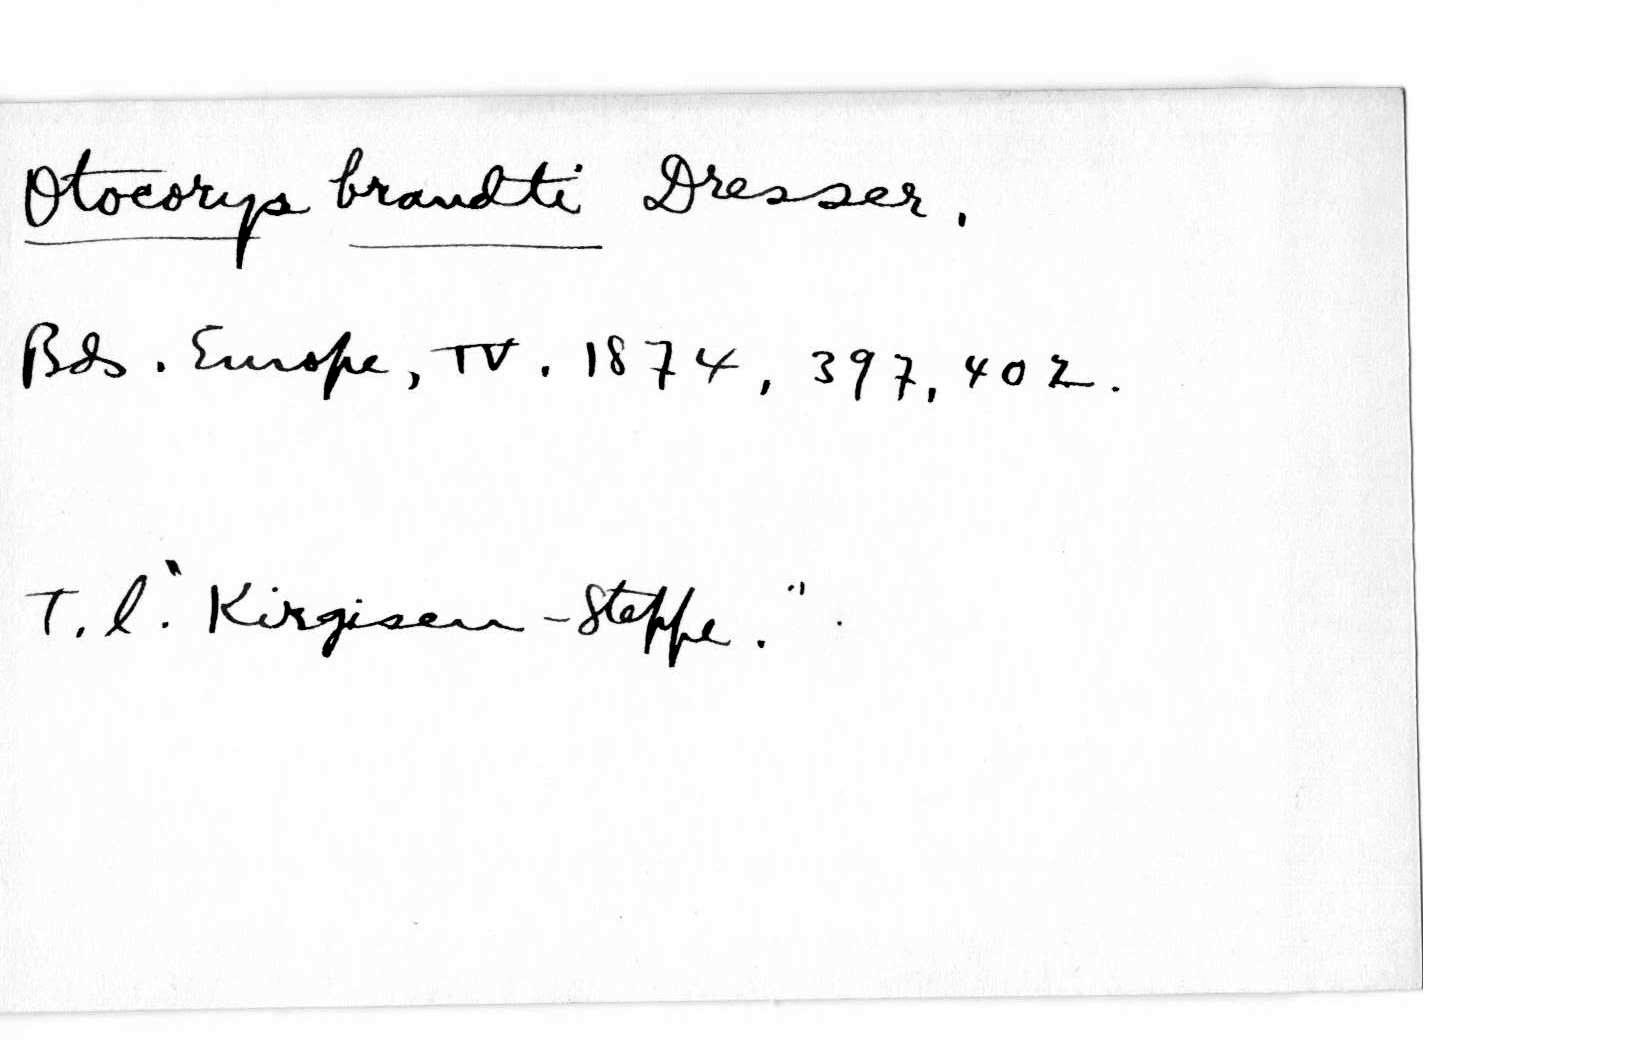 Otocorys brandti Dresser.
Bds. Europe, IV. 1874, 397, 402.
T. l. "Kirgisen-Steppe."